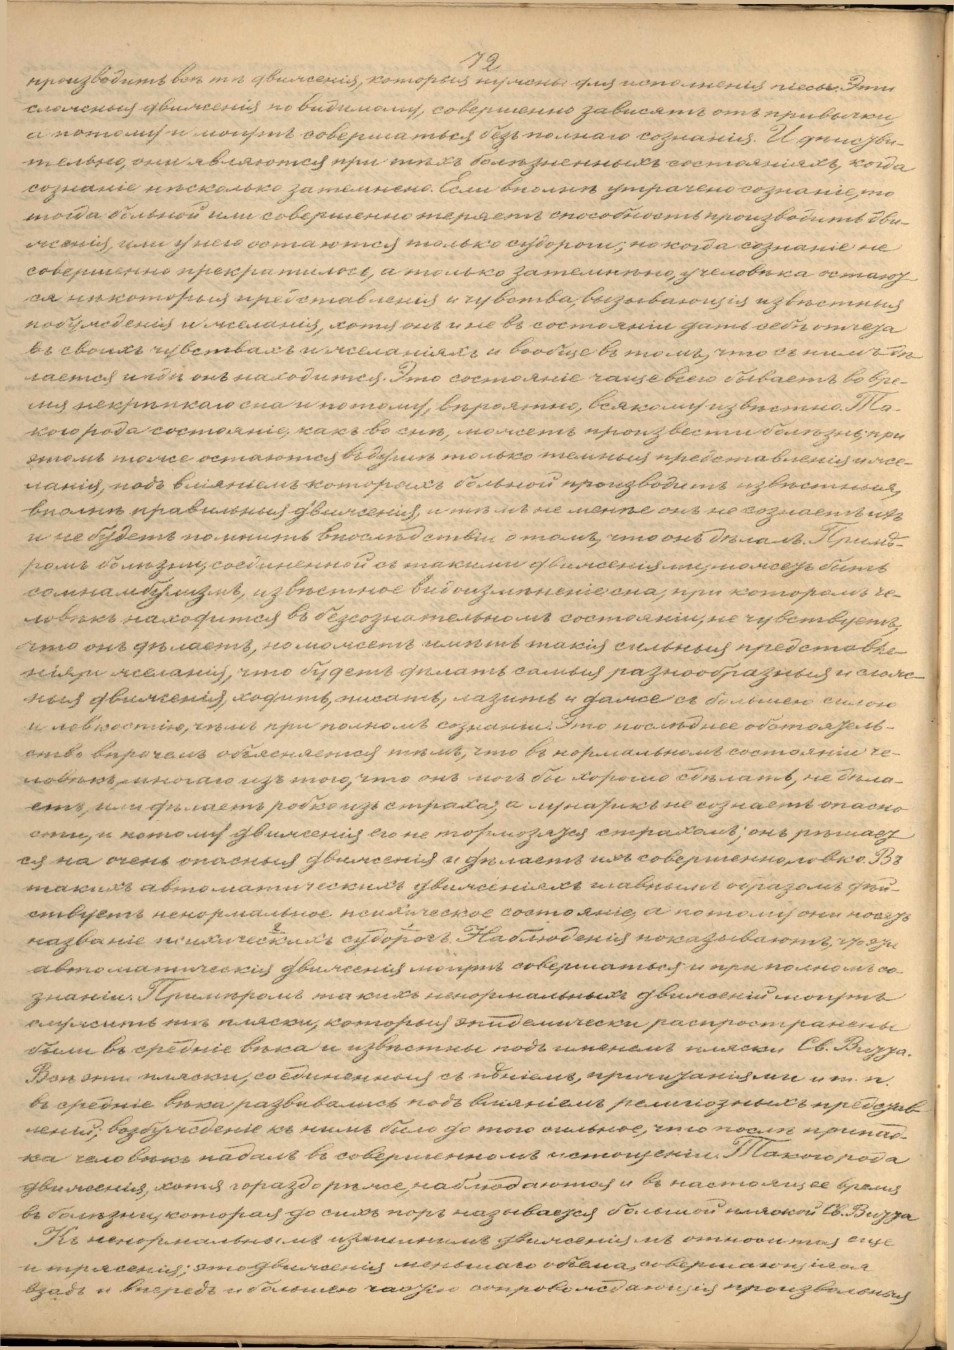 72
производить всѣ тѣ движенія, которыя нужны для исполненія піесы. Эти
сложныя движенія повидимому, совершенно зависятъ отъ привычки
а потому и могутъ совершаться безъ полнаго сознанія. И дѣйстви-
тельно, они являются при тѣхъ болѣзненныхъ состояніяхъ, когда
сознаніе нѣсколько затемнено. Если вполнѣ утрачено сознаніе, то
тогда больной или совершенно теряетъ способность производить дви-
женія, или у него остаются только судороги; но когда сознаніе не
совершенно прекратилось, а только затемнѣно, у человѣка остают
ся нѣкоторыя представленія и чувства, вызывающія извѣстныя
побужденія и желанія, хотя онъ и не въ состояніи дать себѣ отчета
въ своихъ чувствахъ и желаніяхъ и вообще въ томъ, что съ нимъ дѣ
лается и гдѣ онъ находится. Это состояніе чаще всего бываетъ во вре-
мя некрѣпкаго сна и потому, вѣроятно, всякому извѣстно. Та-
кого рода состояніе, какъ во снѣ, можетъ произвести болѣзнь; при
этомъ тоже остаются въ душѣ только темныя представленія и же-
ланія, подъ вліяньемъ которыхъ больной производитъ извѣстныя,
вполнѣ правильныя движенія, и тѣмъ не менѣе онъ не сознаетъ ихъ
и не будетъ помнить впослѣдствіи о томъ, что онъ дѣлалъ. Примѣ-
ромъ болѣзни, соединенной съ такими движеніями, можетъ быть
сомнамбулизмъ, извѣстное видоизмѣненіе сна, при которомъ че-
ловѣкъ находится въ безсознательномъ состояніи, не чувствуетъ,
что онъ дѣлаетъ, но можетъ имѣть такія сильныя представле-
нія и желанія, что будетъ дѣлать самыя разнообразныя и слож-
ныя движенія, ходить, писать, лазить и даже съ большею силою
и ловкостію, чѣмъ при полномъ сознаніи. Это послѣднее обстоятель-
ство впрочемъ объясняется тѣмъ, что въ нормальномъ состояніи че-
ловѣкъ многаго изъ того, что онъ могъ бы хорошо сдѣлать, не дѣла-
етъ, или дѣлаетъ робко изъ страха; а лунатикъ не сознаетъ опасно
сти, и потому движенія его не тормозятся страхомъ; онъ рѣшает
ся на очень опасныя движенія и дѣлаетъ ихъ совершенно ловко. Въ
такихъ автоматическихъ движеніяхъ главнымъ образомъ дѣй-
ствуетъ ненормальное психическое состояніе, а потому они носятъ
названіе психическихъ судорогъ. Наблюденія показываютъ, что эти
автоматическія движенія могутъ совершаться и при полномъ со-
знаніи. Примѣромъ такихъ ненормальныхъ движеній могутъ
служить тѣ пляски, которыя эпидемически распространены
были въ средніе вѣка и извѣстны подъ именемъ пляски Св. Витта.
Всѣ эти пляски, соединенныя съ пѣніемъ, причитаніями и т. п.
въ средніе вѣка развивались подъ вліяніемъ религіозныхъ представ-
леній; возбужденіе къ нимъ было до того сильное, что послѣ припад-
ка человѣкъ падалъ въ совершенномъ истощеніи. Такого рода
движенія, хотя гораздо рѣже, наблюдаются и въ настоящее время
въ болѣзни, которая до сихъ поръ называется большой пляской Св. Витта
Къ ненормальнымъ движеніямъ относится еще
и трясенія; это движенія меньшаго объема, совершающіяся
взадъ и впередъ и большею частію сопровождающія произвольныя